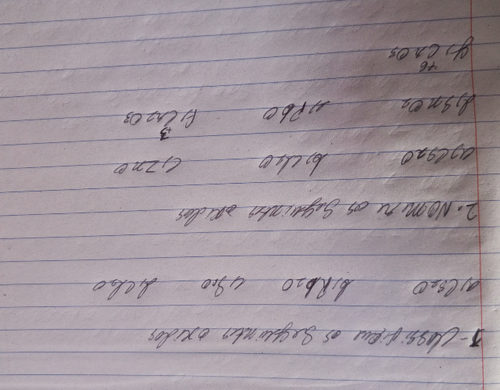 1- Classifique os seguintes oxidos
a) Cs2O b) Rb2O c) SrO d) Cl2O
2- Nomeie os seguintes oxidos
a) Cs2O b) Cl2O c) ZnO
d) SnO2 e) PbO f) Cr2O3
3
g) CrO3
+6